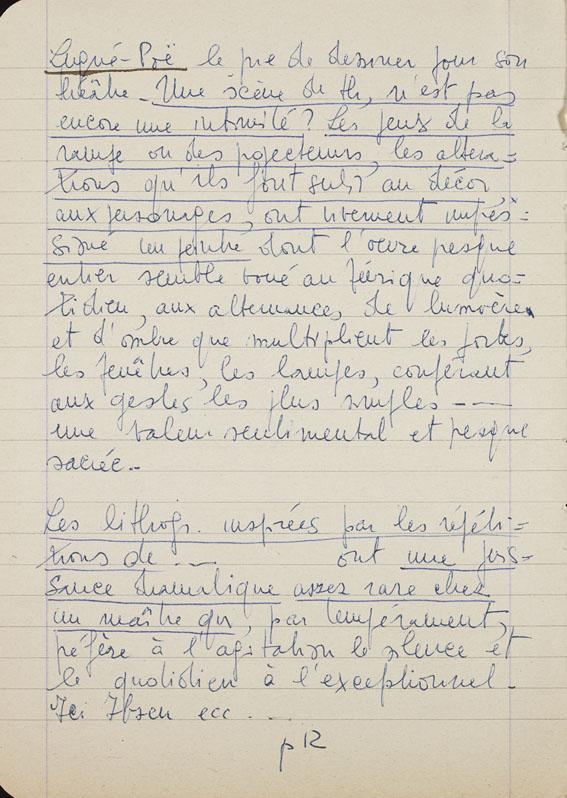 Lugné-Poë le prie de dessiner pour son
théâtre. Une scène de th, n'est pas
encore une intimité? Les jeux de la
rampe ou des projecteurs, les altera-
tions qu'ils font subir au décor
aux personages, ont vivement impres-
sioné un peintre dont l'œuvre presque
entier semble voué au féérique quo-
tidien, aux alternances de lumière
et d'ombre que multiplient les portes,
les fenêtres, les lampes, conférant
aux gestes les plus simples ---
une valeur sentimental et presque
sacrée.-
Les lithogr. inspirées par les répéti-
tions de .__ ont une puis-
sance dramatique assez rare chez
un maître qui, par tempérament,
préfère à l'agitation le silence et
le quotidien à l'exceptionnel.
Ici Ibsen ecc ....
p 12